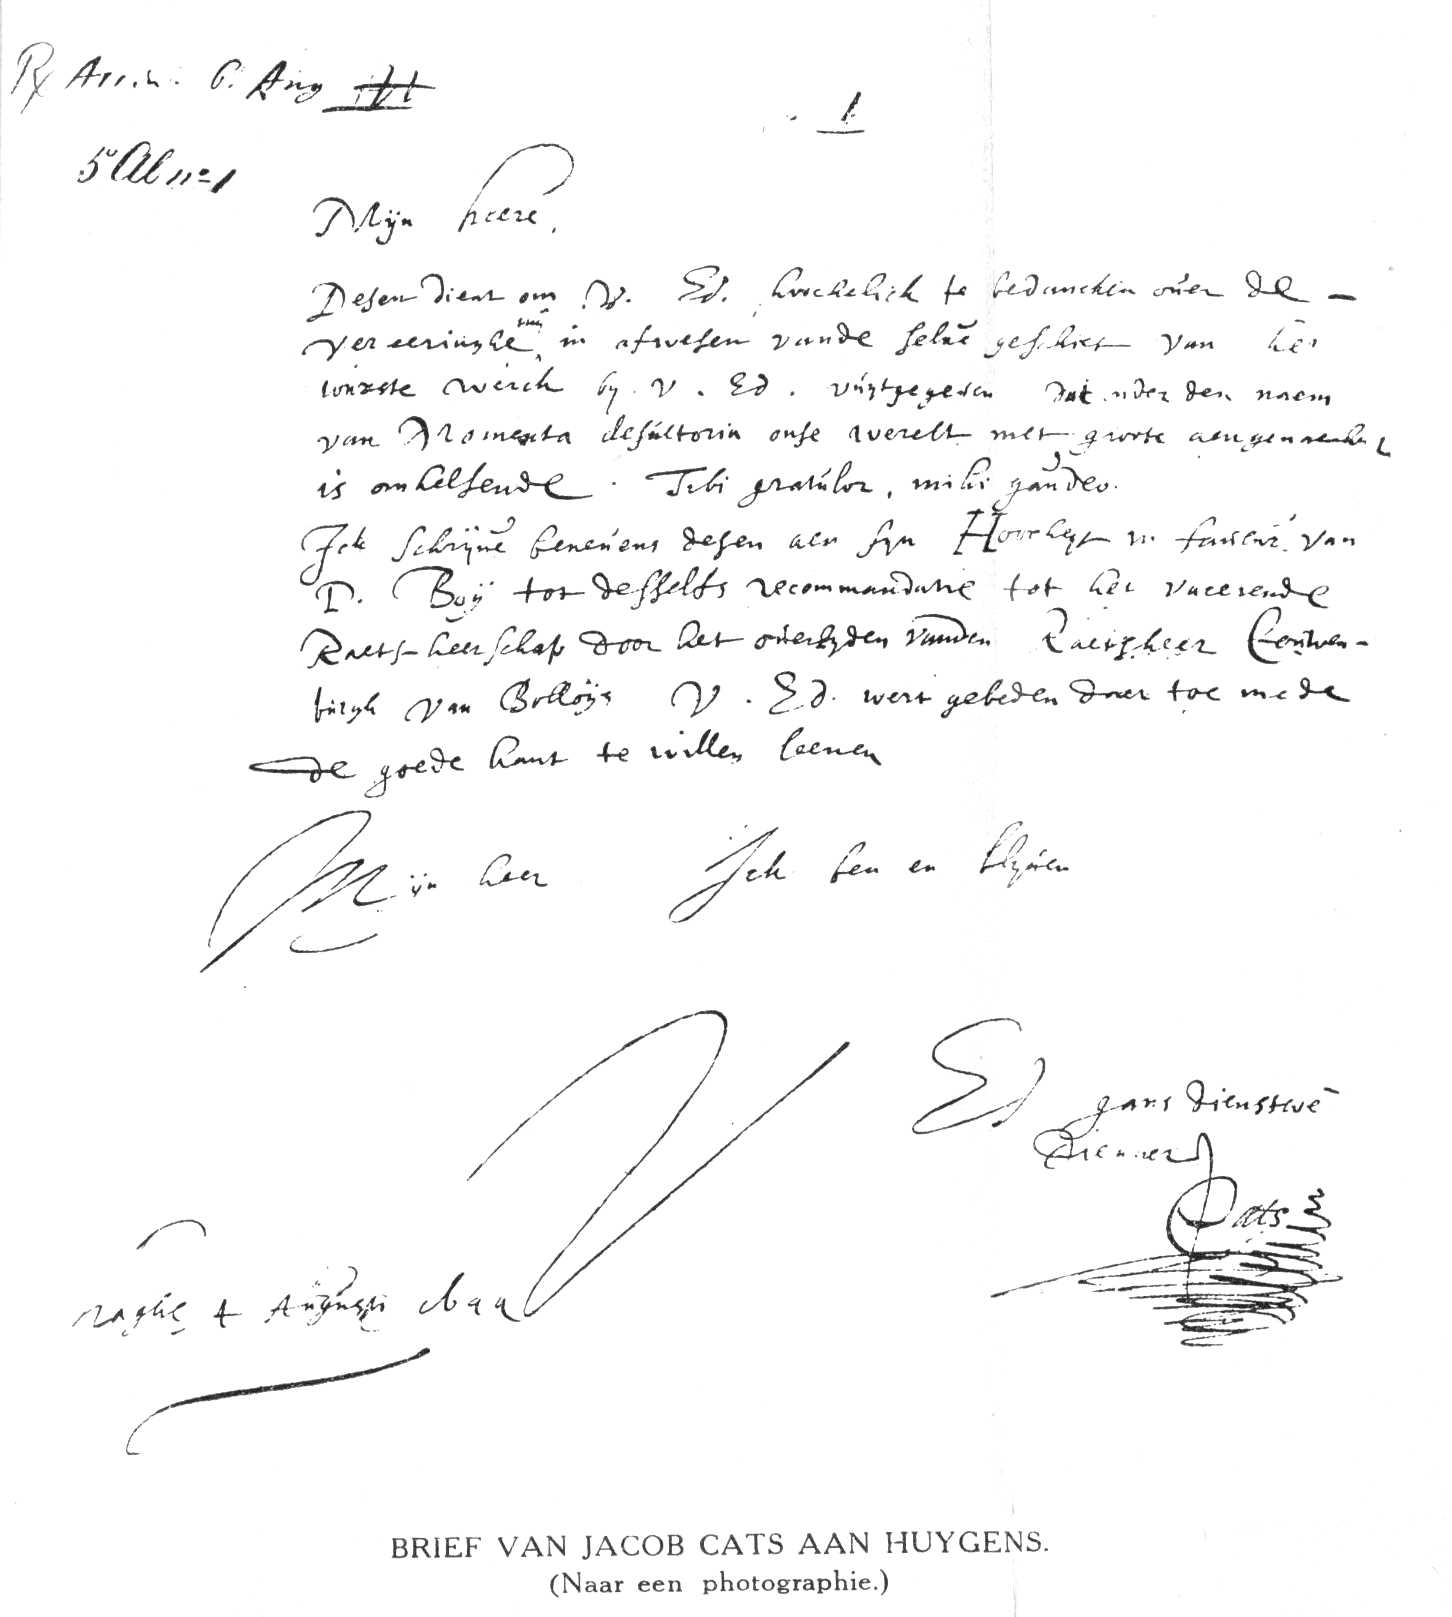 Rx Arri. 6. Aug
1
5° Al n° 1
Mijn heere,
Desen dient om V. Ed. hoochelick te bedancken over de
vereeringhe mij in afwesen vande selve geschiet van het
werck by V. Ed. vuytgegeven dat onder den naem
van Momenta desultoria onse werelt met groote
is omhelsende. Tibi gratulor, mihi gaudeo.
Ick schrijve benevens desen aen syn Hoocheyt in faveur van
D. Buy tot desselfs recommandatie tot het vacerende
Raets-heerschap door het overlyden vanden Raetsheer
burgh van V. Ed. wert gebeden daer toe mede
de goede hant te willen leenen
Mijn heer Ick ben en blyven
V Ed gans dienstwē
Dienner
Cats
haghe 4 Augusti
BRIEF VAN JACOB CATS AAN HUYGENS.
(Naar een photographie.)